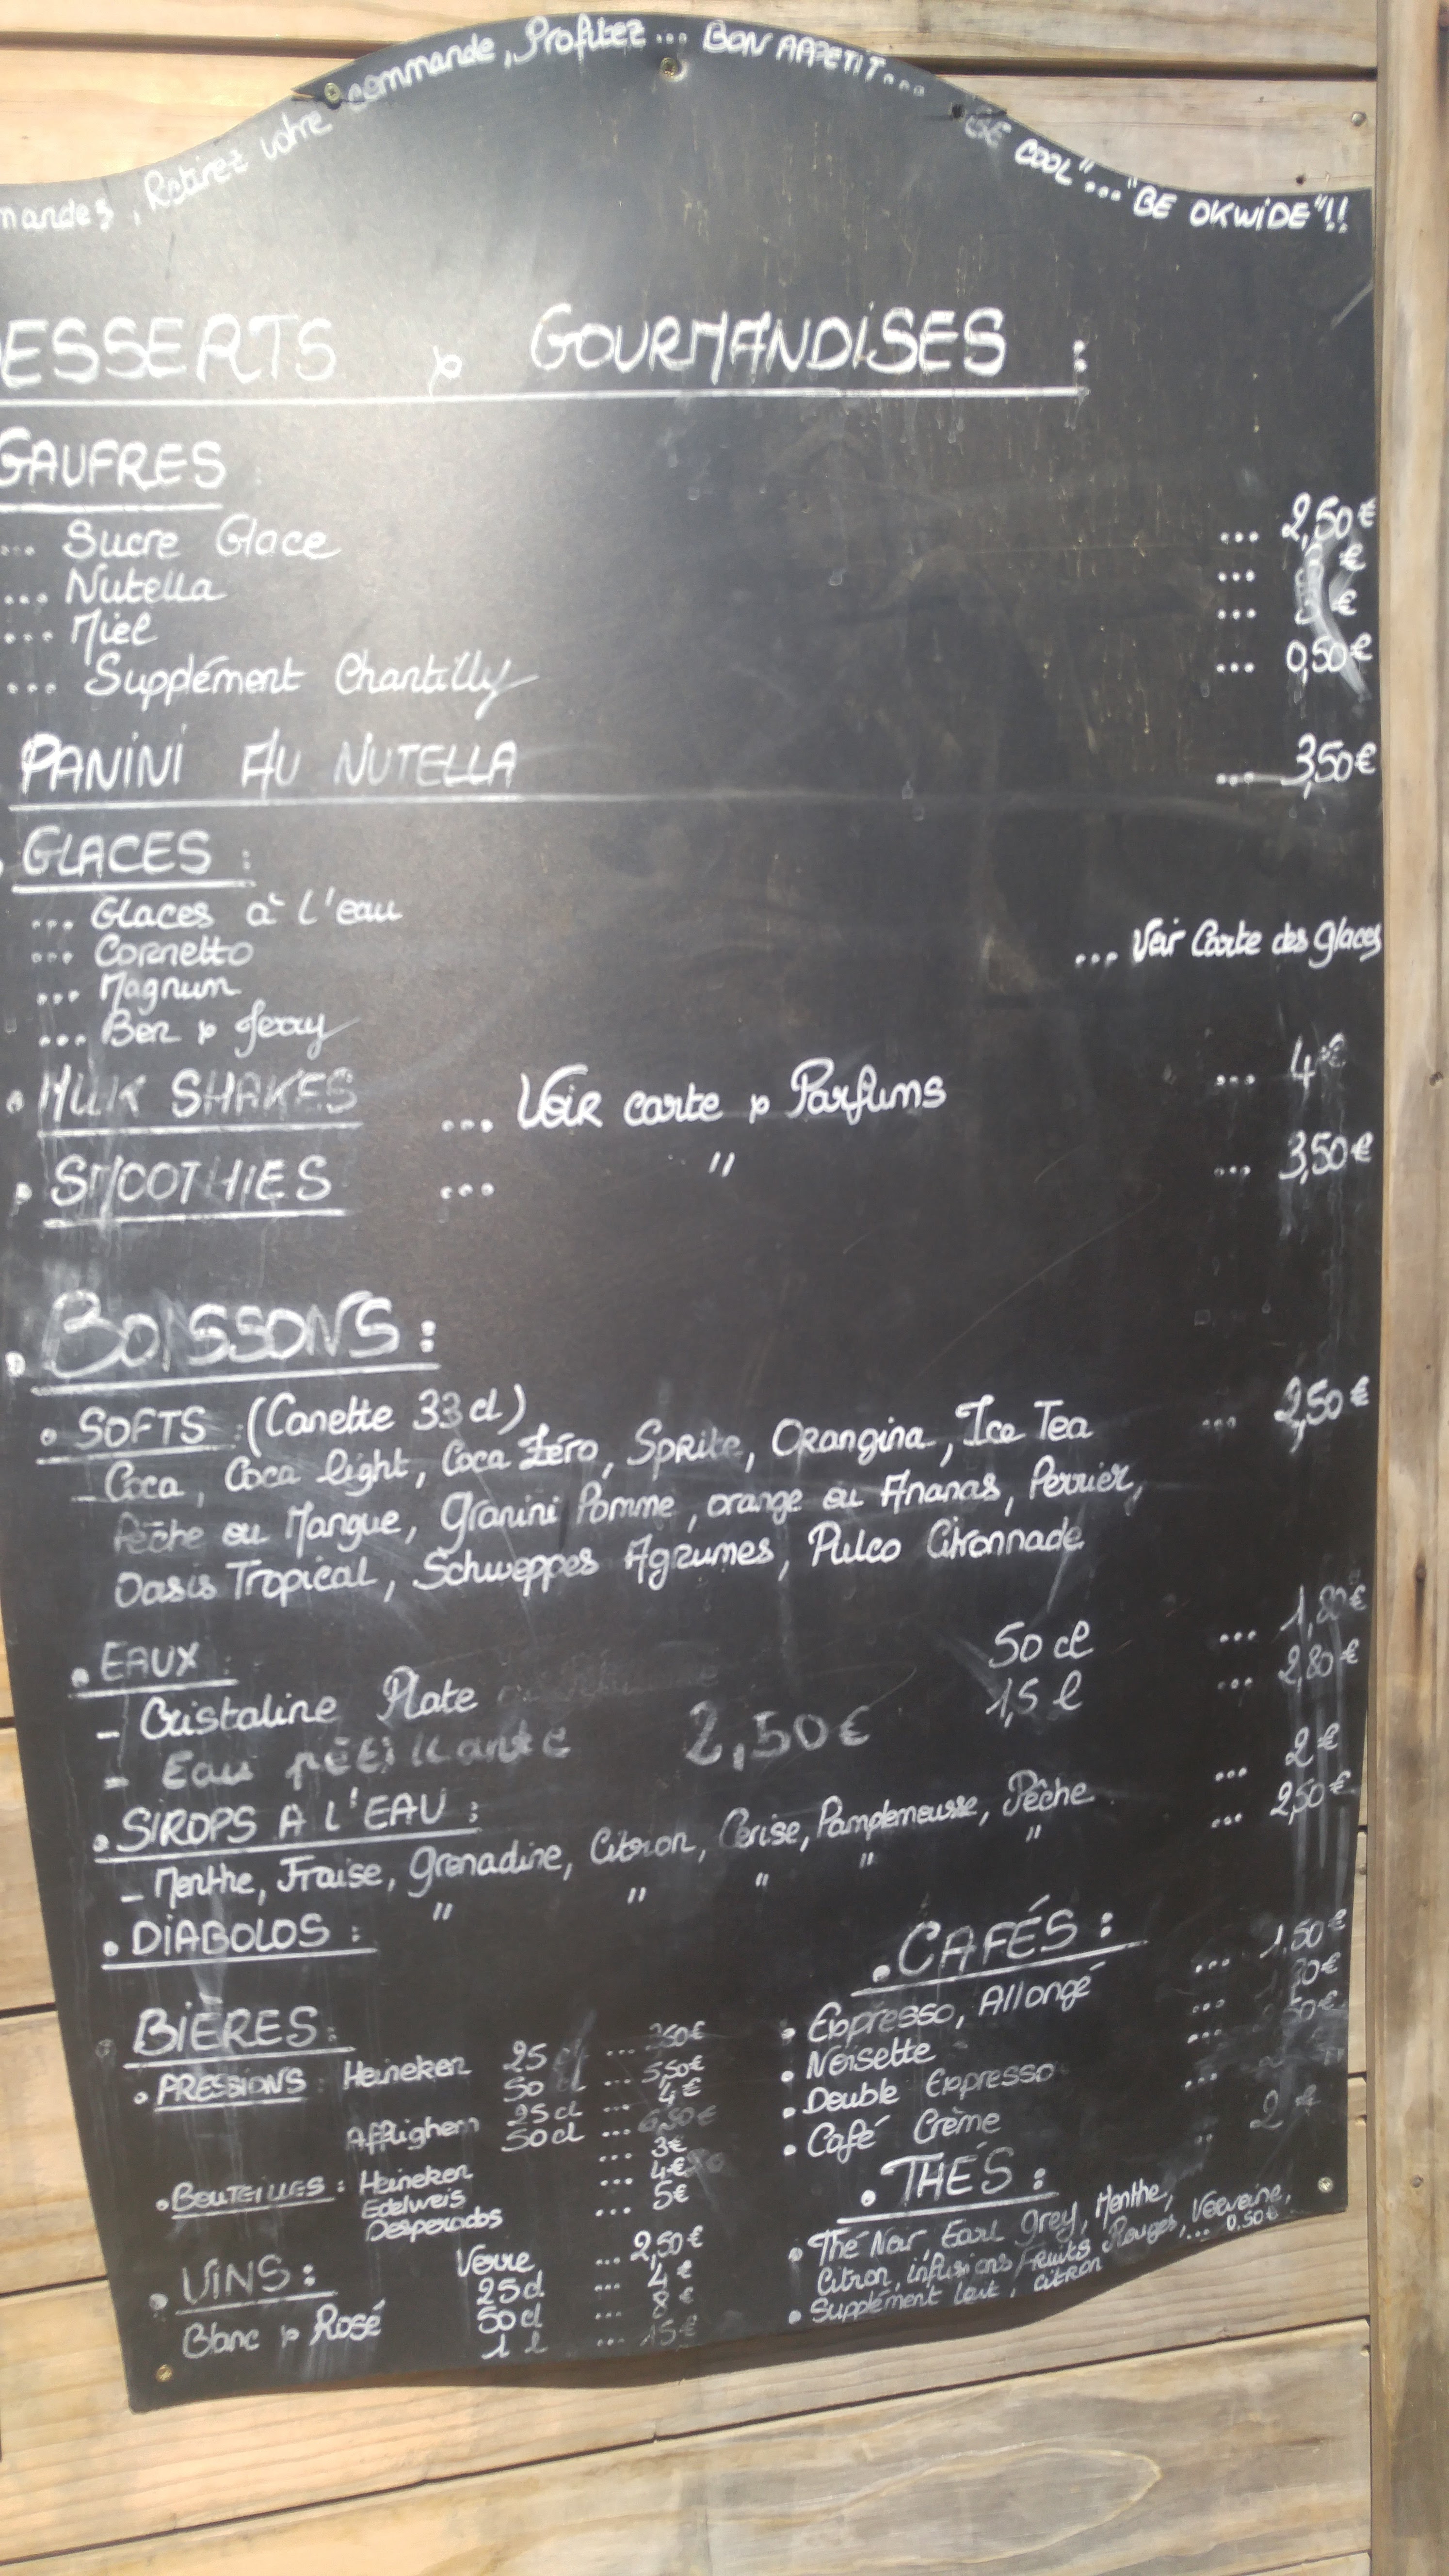 mandes, Retirez votre commande, Profitez... BON APPETIT... "BE COOL"... "BE OKWIDE"!!
ESSERTS & GOURMANDISES :
GAUFRES :
... Sucre Glace ... 2,50€
... Nutella ... €
... Miel ... €
... Supplément Chantilly ... 0,50€
PANINI AU NUTELLA ... 3,50€
GLACES :
... Glaces à l'eau
... Cornetto ... Voir Carte des glaces
... Magnum
... Ben & Jerry
• MILK SHAKES ... Voir carte & Parfums ... 4€
• SMOOTHIES ... " ... 3,50€
• BOISSONS :
• SOFTS : (Canette 33cl) ... 2,50€
- Coca, Coca light, Coca Zéro, Sprite, Orangina, Ice Tea
Pêche ou Mangue, Granini Pomme, orange ou Ananas, Perrier,
Oasis Tropical, Schweppes Agrumes, Pulco Citronnade
• EAUX :
- Cristaline Plate 50 cl ... 1,80€
1,5 l ... 2,80€
- Eau pétillante 2,50€
• SIROPS A L'EAU : ... 2€
- Menthe, Fraise, Grenadine, Citron, Cerise, Pamplemousse, Pêche
• DIABOLOS : " " " " " ... 2,50€
BIÈRES :
• PRESSIONS : Heineken 25 cl ... 3,50€
50 cl ... 5,50€
Afflighem 25cl ... 4€
50cl ... 6,50€
• BOUTEILLES : Heineken ... 3€
Edelweis ... 4€
Desperados ... 5€
• VINS : Verre ... 2,50€
25cl ... 4€
Blanc & Rosé 50cl ... 8€
1 l ... 15€
• CAFÉS :
• Expresso, Allongé ... 1,50€
• Noisette ...
• Double Expresso ...
• Café Crème ...
• THÉS : ... 2€
• Thé Noir, Earl Grey, Menthe,
Citron, infusions Fruits Rouges, Verveine,
• Supplément lait, citron ... 0,50€